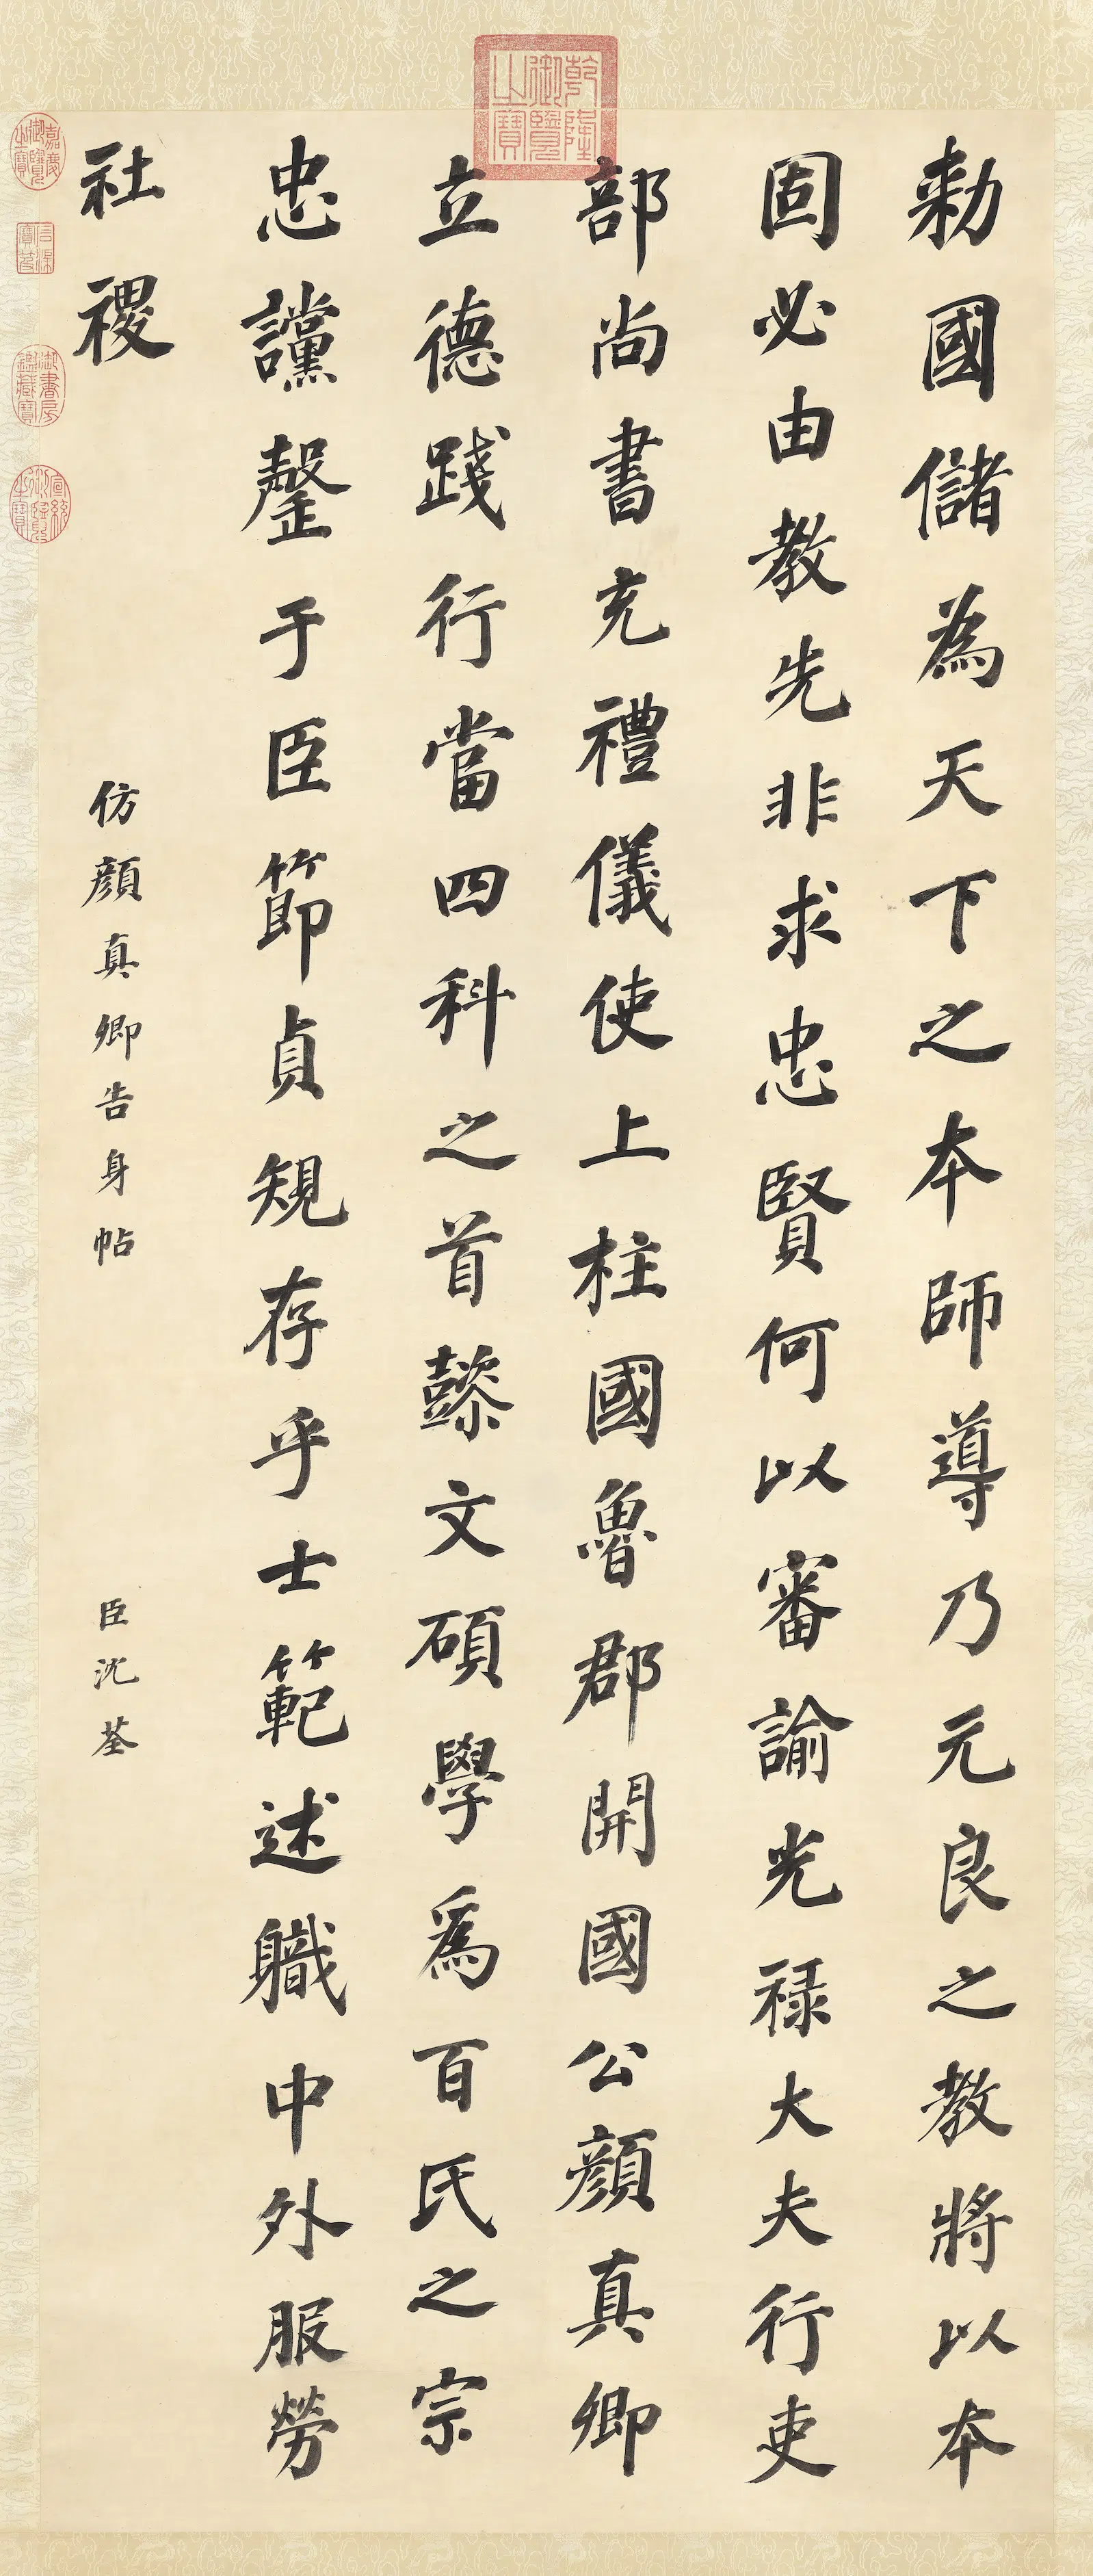 勅國儲為天下之本師導乃元良之教將以本
固必由教先非求忠賢何以審諭光禄大夫行吏
部尚書充禮儀使上柱國魯郡開國公顔真卿
立德踐行當四科之首懿文碩學爲百氏之宗
忠讜罄于臣節貞規存乎士範述職中外服勞
社稷
仿顔真卿告身帖
臣沈荃
乾隆御覽之寶
嘉慶御覽之寶
御書房鑑藏寶
宣統御覽之寶